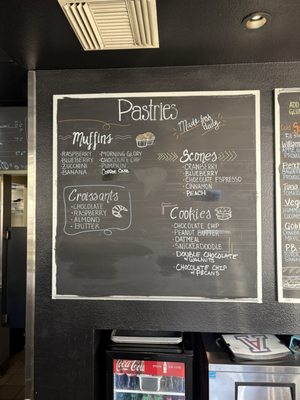 Pastries
Made fresh daily
Muffins
-RASPBERRY
-BLUEBERRY
-ZUCCHINI
-BANANA
-MORNING GLORY
-CHOCOLATE CHIP
-PUMPKIN
Coffee Cake
Scones
-CRANBERRY
-BLUEBERRY
-CHOCOLATE ESPRESSO
-CINNAMON
PEACH
Croissants
-CHOCOLATE
-RASPBERRY
-ALMOND
-BUTTER
Cookies
-CHOCOLATE CHIP
-PEANUT BUTTER
-OATMEAL
-SNICKERDOODLE
-DOUBLE CHOCOLATE
w/ WALNUTS
-CHOCOLATE CHIP
w/ PECANS
Coca-Cola